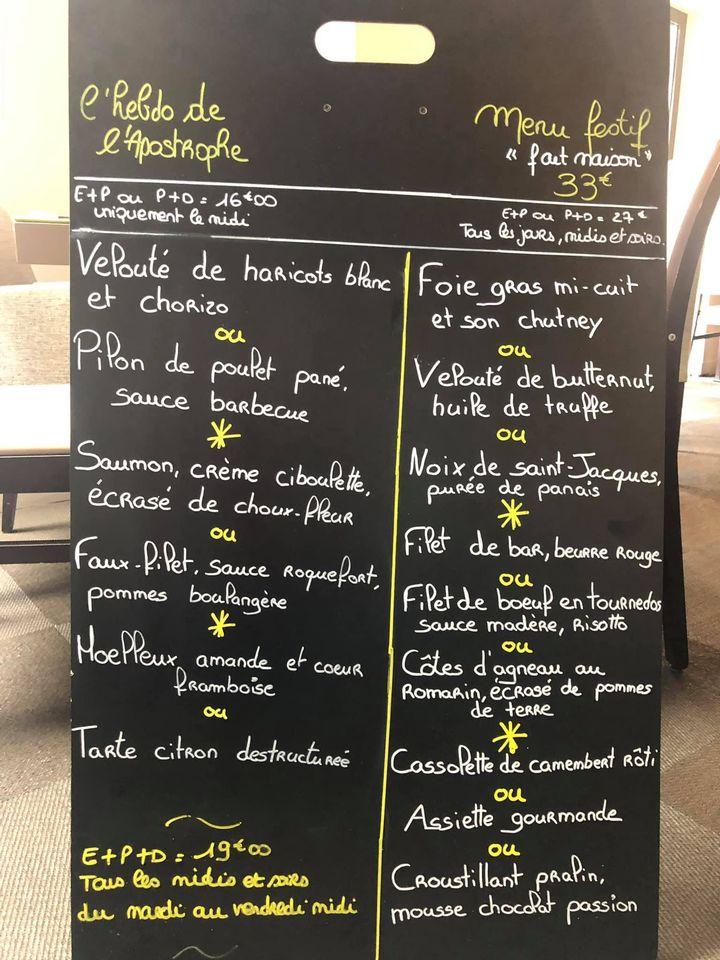 l'hebdo de
l'Apostrophe
E+P ou P+D = 16€00
uniquement le midi
Velouté de haricots blanc
et chorizo
ou
Pilon de poulet pané,
sauce barbecue
*
Saumon, crème ciboulette,
écrasé de choux-fleur
ou
Faux-filet, sauce roquefort,
pommes boulangère
*
Moelleux amande et coeur
framboise
ou
Tarte citron destructurée
E+P+D = 19€00
Tous les midis et soirs
du mardi au vendredi midi
Menu festif
"fait maison"
33€
E+P ou P+D = 27€
Tous les jours, midis et soirs.
Foie gras mi-cuit
et son chutney
ou
Velouté de butternut,
huile de truffe
ou
Noix de saint-Jacques,
purée de panais
*
Filet de bar, beurre rouge
ou
Filet de boeuf en tournedos
sauce madère, risotto
ou
Côtes d'agneau au
romarin, écrasé de pommes
de terre
*
Cassolette de camembert rôti
ou
Assiette gourmande
ou
Croustillant pralin,
mousse chocolat passion